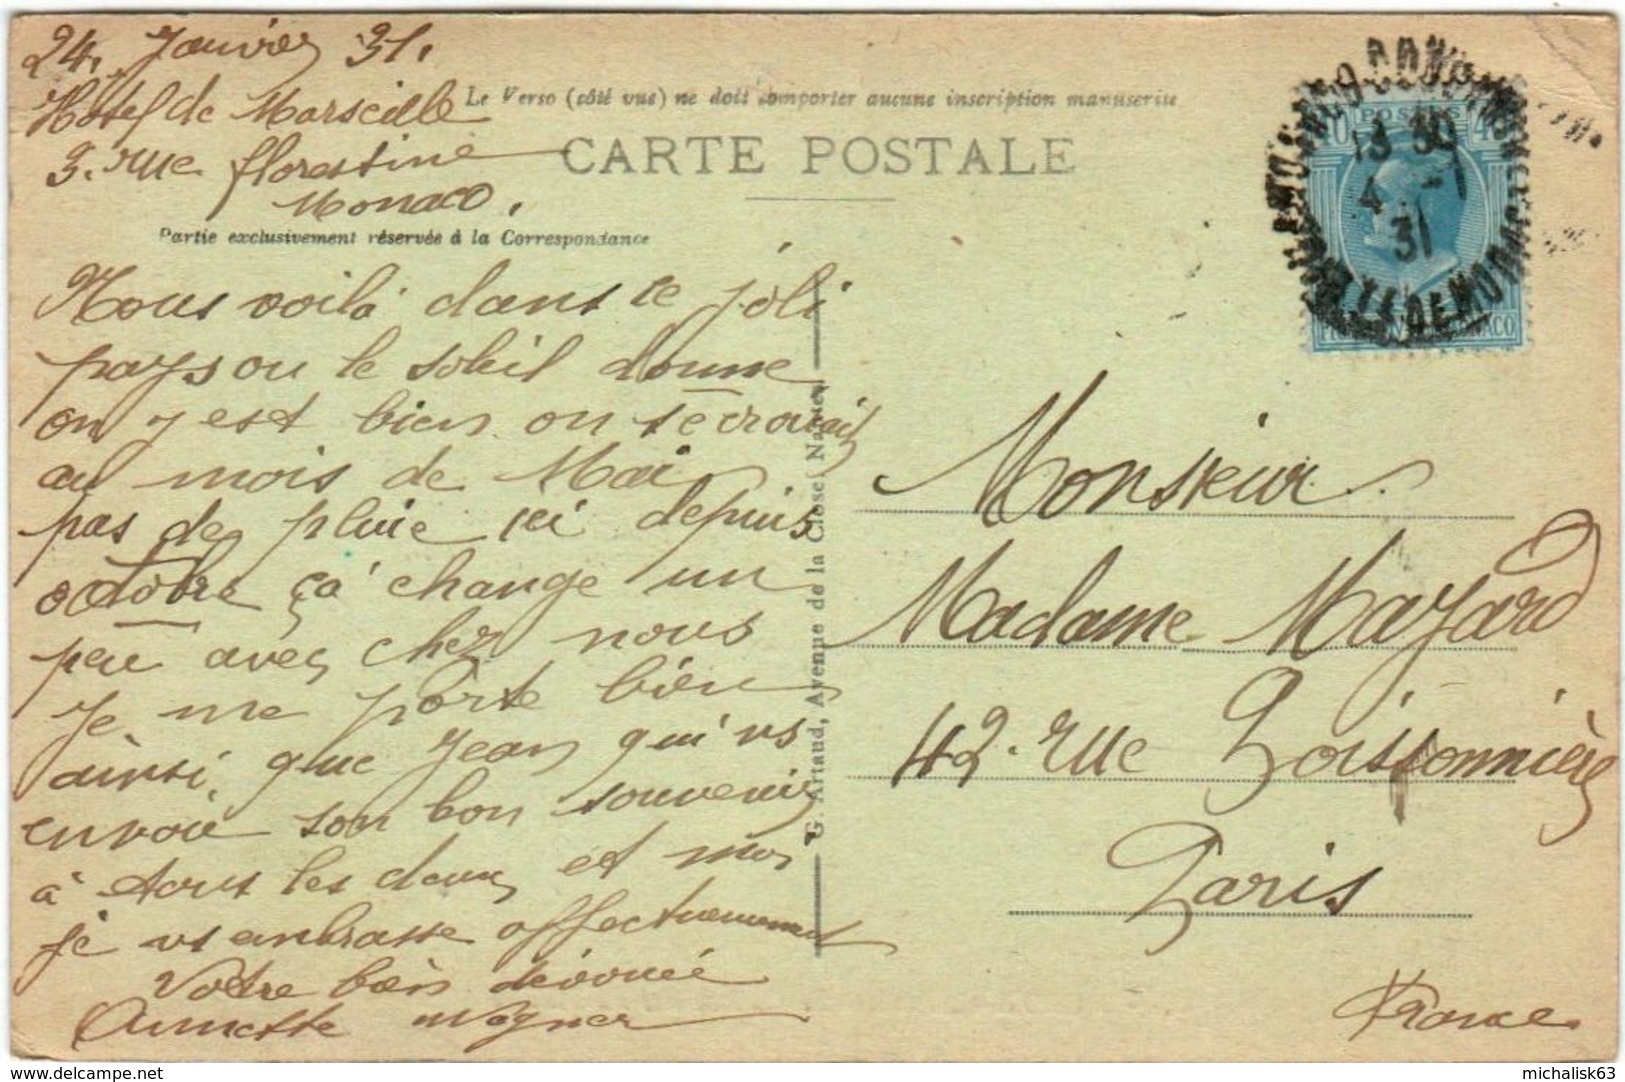 24, Janvier 31.
Hôtel de Marseille
3. rue florestine
Monaco.
Le Verso (côté vue) ne doit comporter aucune inscription manuscrite
CARTE POSTALE
Partie exclusivement réservée à la Correspondance
Nous voilà dans le joli
pays ou le soleil donne
on y est bien on se croirait
au mois de Mai
pas de pluie ici depuis
octobre ça change un
peu avec chez nous
Je me porte bien
ainsi que Jean qui vs
envoie son bon souvenir
à tous les deux et moi
je vs embrasse affectueusement
Votre bien dévouée
Annette Wagner
G. Artaud, Avenue de la Close, Nantes
POSTES
40
13 30
4 -1
31
Monsieur
Madame Mayard
42. rue Poissonnière
Paris
France
delcampe.net
michalisk63